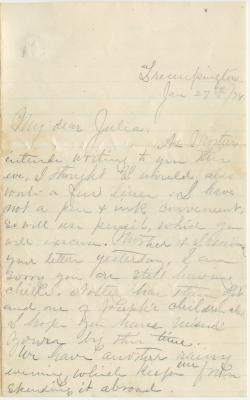 Trumpington
Jan 27th /78
My dear Julia.
As Mother
intends writing to you this
eve, I thought I would also
write a few lines. I have
not a pen & ink convenient
so will use pencil, which you
will excuse. Mother & I received
your letter yesterday, I am
sorry you are still having
chills.
and one of Joseph's children also
I hope you have missed
yours by this time.
We have another rainy
evening, which keeps me from
spending it abroad.